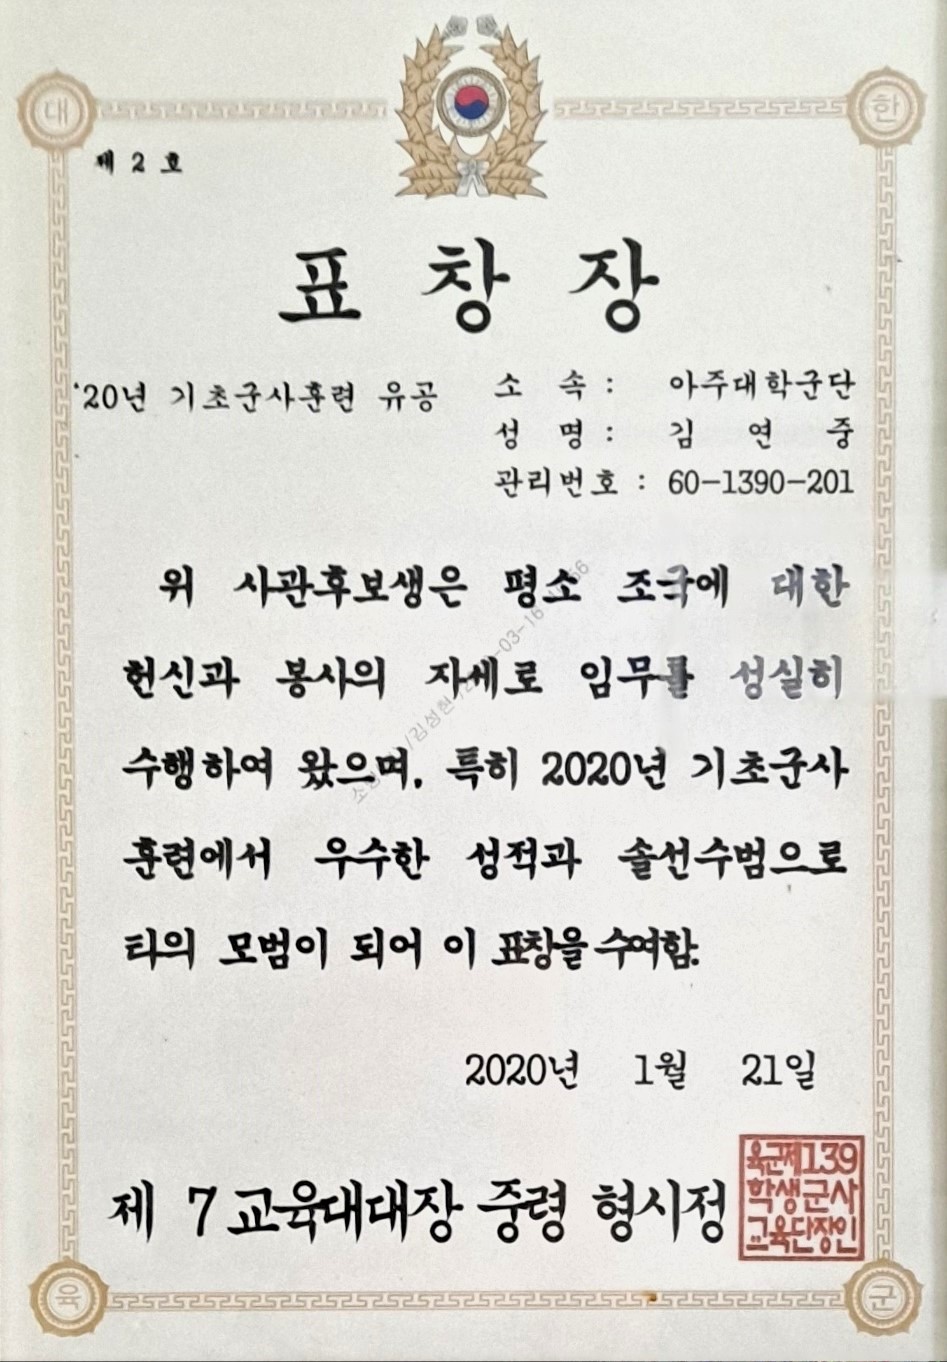 대 한
제 2 호
표 창 장
'20년 기초군사훈련 유공
소 속 : 아주대학군단
성 명 : 김 연 중
관리번호 : 60-1390-201
위 사관후보생은 평소 조국에 대한
헌신과 봉사의 자세로 임무를 성실히
수행하여 왔으며, 특히 2020년 기초군사
훈련에서 우수한 성적과 솔선수범으로
타의 모범이 되어 이 표창을 수여함.
2020년 1월 21일
제 7교육대대장 중령 형시정
육군제139
학생군사
교육단장인
육 군